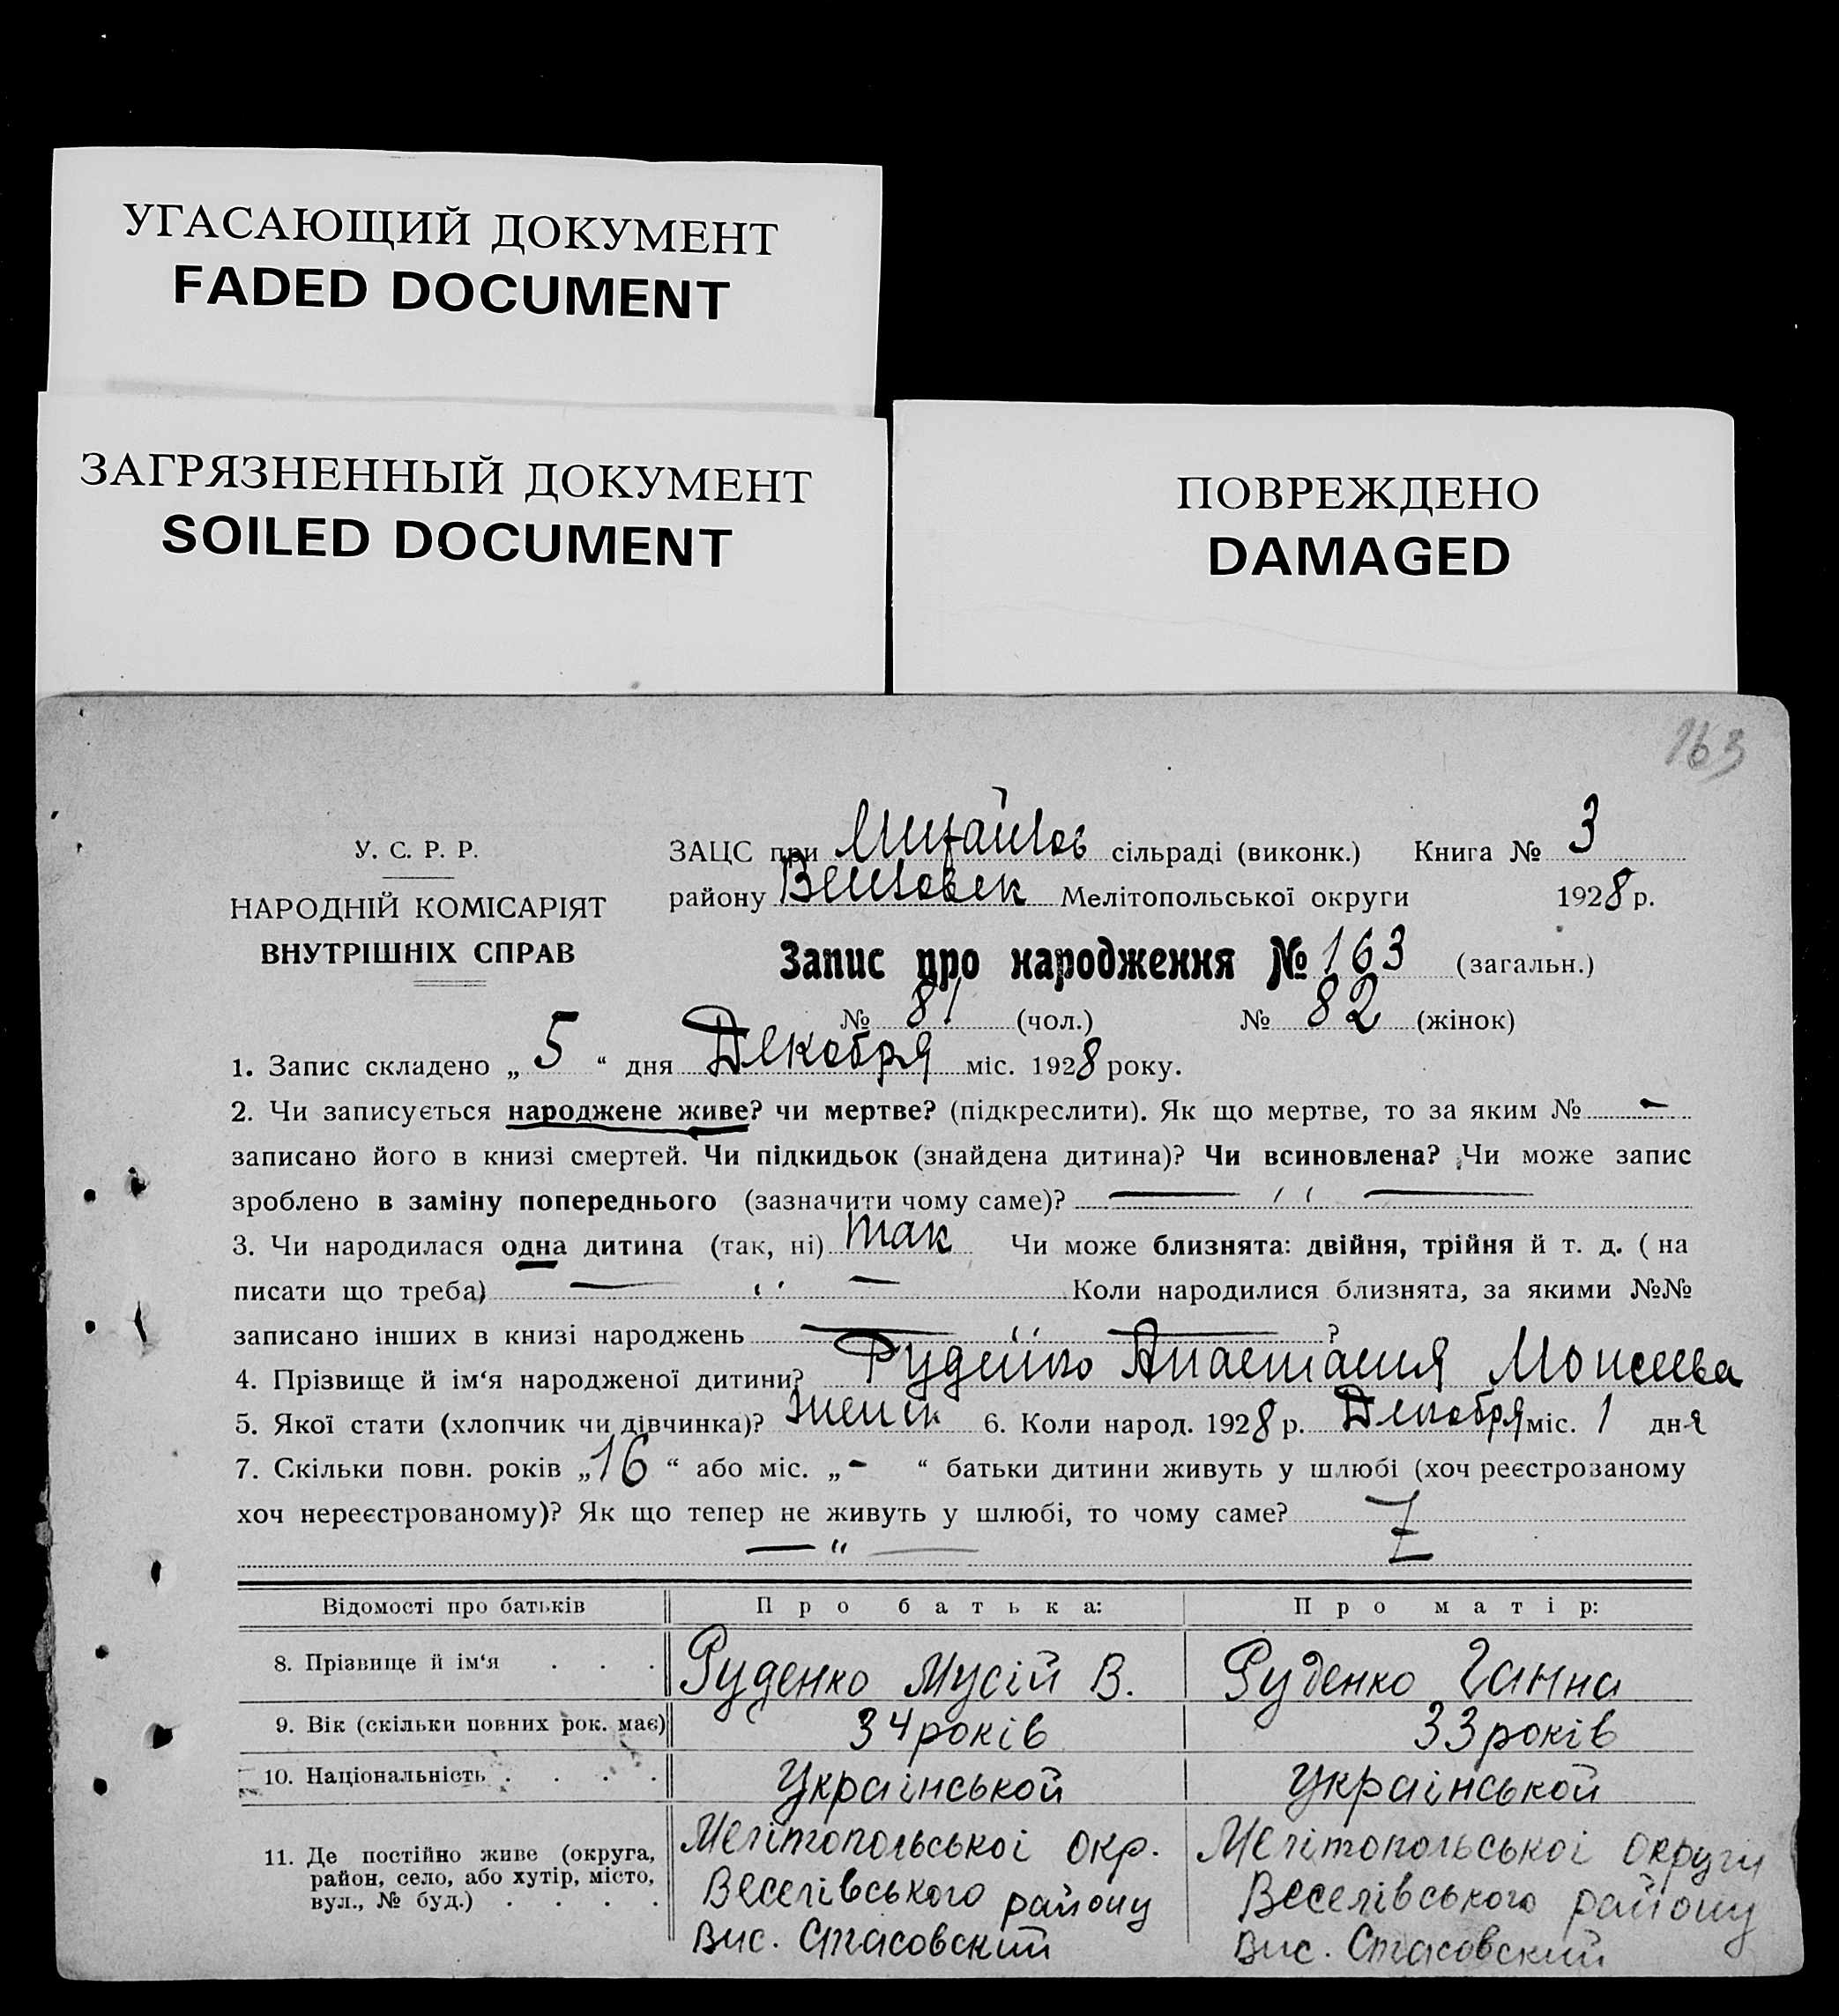 УГАСАЮЩИЙ ДОКУМЕНТ
FADED DOCUMENT
ЗАГРЯЗНЕННЫЙ ДОКУМЕНТ
SOILED DOCUMENT
ПОВРЕЖДЕНО
DAMAGED
163
У. С. Р. Р.
НАРОДНІЙ КОМІСАРІЯТ
ВНУТРІШНІХ СПРАВ
ЗАЦС при Михайлов сільраді (виконк.) Книга № 3
району Мелітопольської округи 1928 р.
Запис про народження № 163 (загальн.)
№ 81 (чол.) № 82 (жінок)
1. Запис складено „ 5 “ дня Декабря міс. 1928 року.
2. Чи записується народжене живе? чи мертве? (підкреслити). Як що мертве, то за яким № –
записано його в книзі смертей. Чи підкидьок (знайдена дитина)? Чи всиновлена? Чи може запис
зроблено в заміну попереднього (зазначити чому саме)? — " —
3. Чи народилася одна дитина (так, ні) так Чи може близнята: двійня, трійня й т. д. ( на
писати що треба) — " — Коли народилися близнята, за якими №№
записано інших в книзі народжень — " — ?
4. Прізвище й ім‘я народженої дитини? Руденко Анастасия Моисеева
5. Якої стати (хлопчик чи дівчинка)? женск 6. Коли народ. 1928 р. Декабря міс. 1 дня
7. Скільки повн. років „ 16 “ або міс. „ - “ батьки дитини живуть у шлюбі (хоч реєстрованому
хоч нереєстрованому)? Як що тепер не живуть у шлюбі, то чому саме?
— " —
Відомості про батьків Про батька: Про матір:
8. Прізвище й ім‘я . . . Руденко Мусій В. Руденко Ганна
9. Вік (скільки повних рок. має) 34 років 33 років
10. Національність . . . . Українськой Українськой
11. Де постійно живе (округа, район, село, або хутір, місто, вул., № буд.) . . . .
Мелітопольськоі окр. Мелітопольськоі округи
Веселівського району Веселівського району
Вис. Стасовский Вис. Стасовский